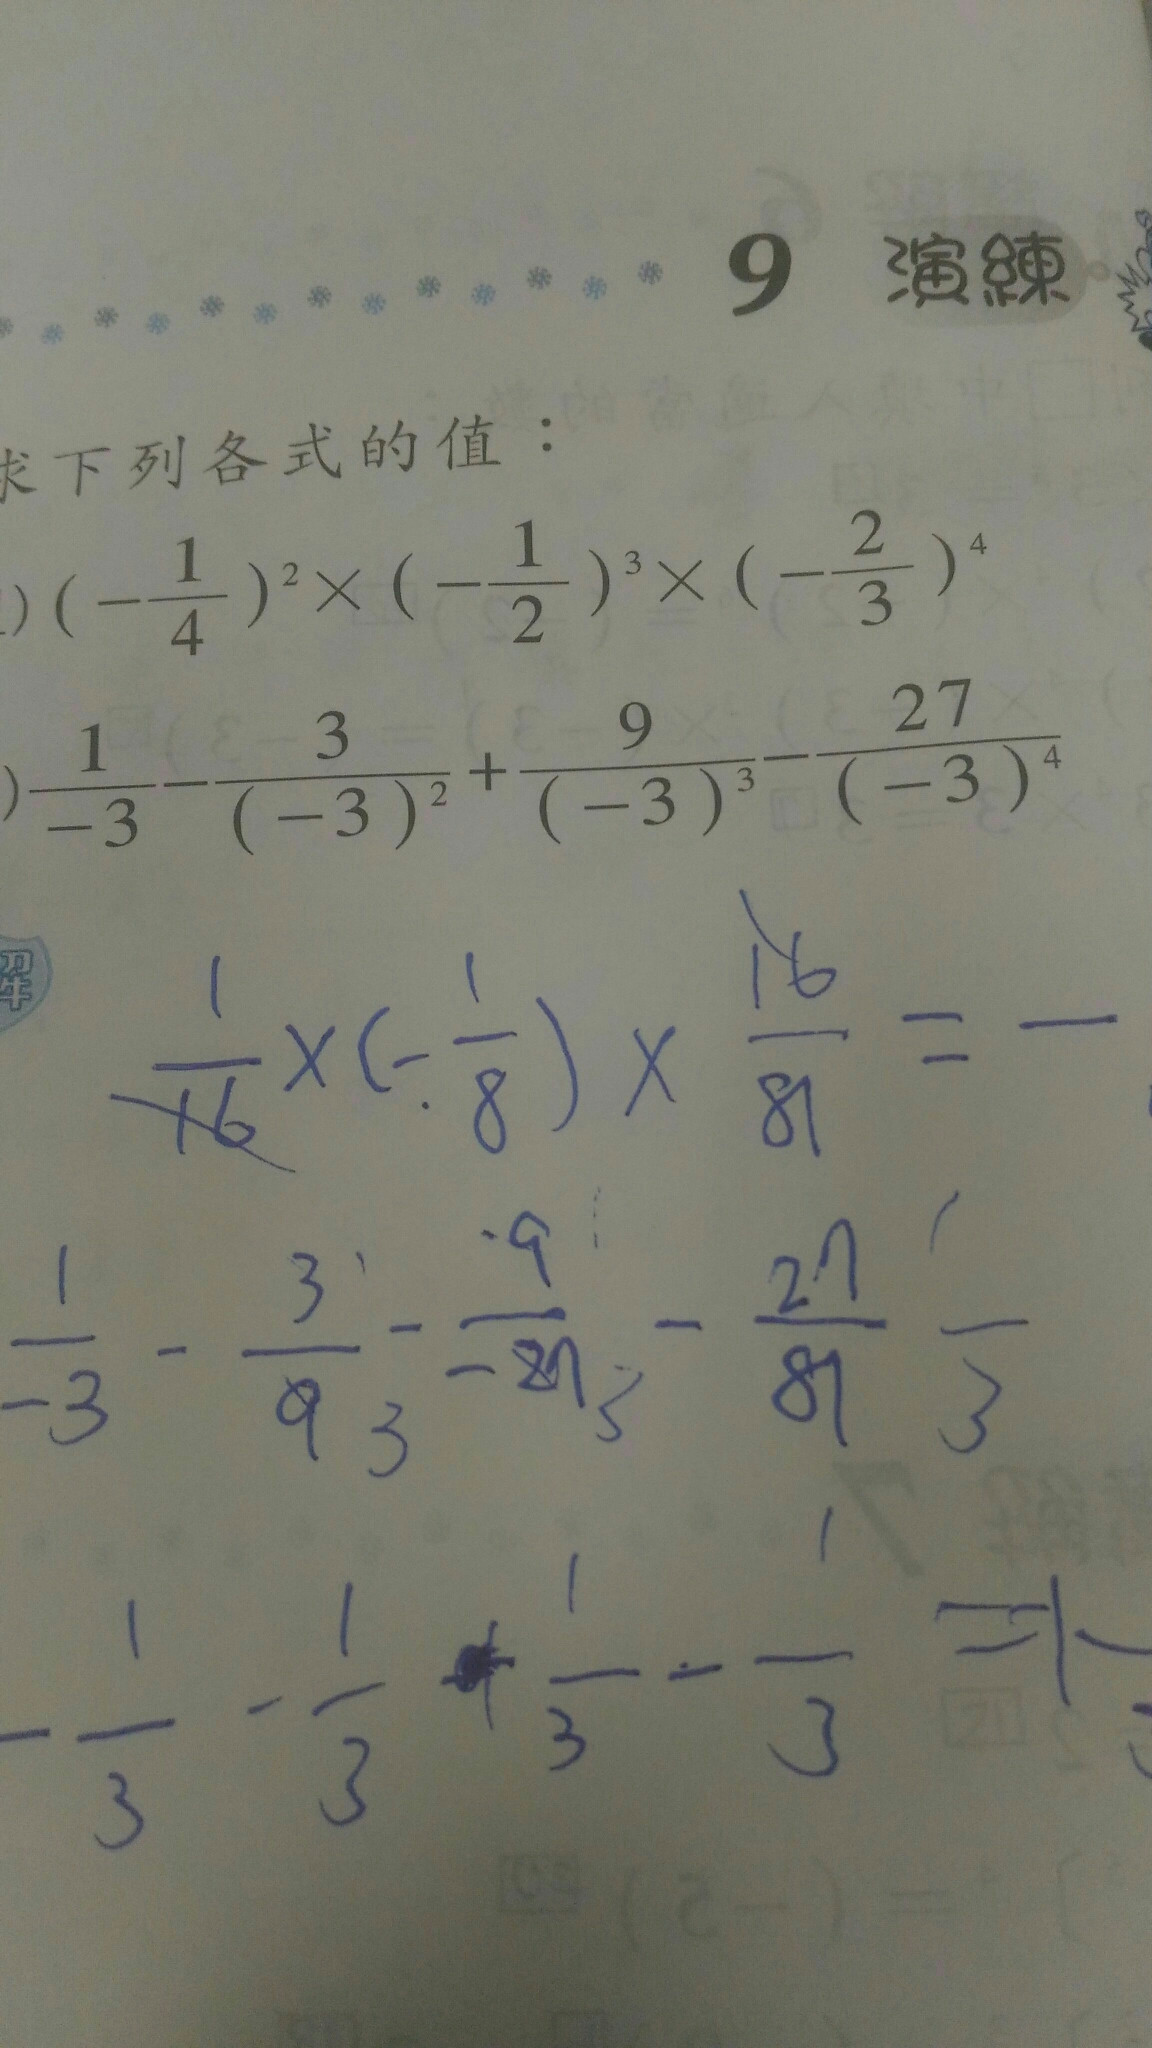 9 演練
求下列各式的值：
(-1/4)²×(-1/2)³×(-2/3)⁴
1/-3 - 3/(-3)² + 9/(-3)³ - 27/(-3)⁴
解
1/16 × (-1/8) × 16/81 = -
1/-3 - 3/9 1 3 - 9/-27 1 3 - 27/81 1/3
-1/3 - 1/3 + 1/3 - 1/3 =